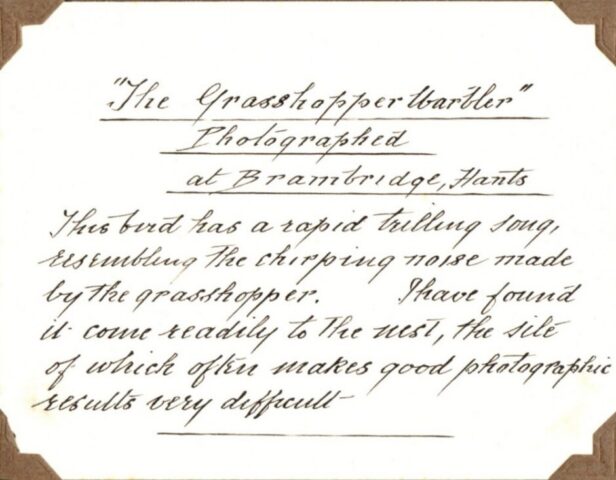 "The Grasshopper Warbler"
Photographed
at Brambridge, Hants
This bird has a rapid trilling song,
resembling the chirping noise made
by the grasshopper. I have found
it come readily to the nest, the site
of which often makes good photographic
results very difficult